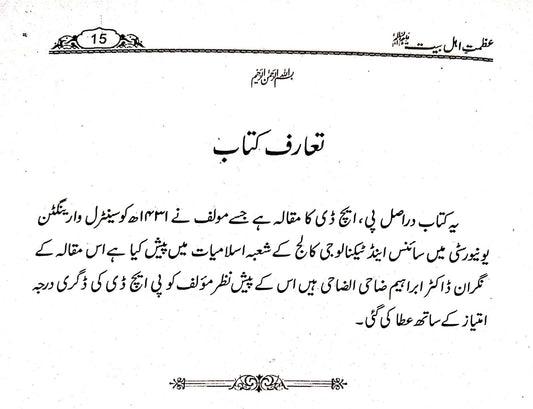 15
عظمتِ اہل بیت ﷺ
بسم اللہ الرحمن الرحیم
تعارف کتاب
یہ کتاب دراصل پی، ایچ ڈی کا مقالہ ہے جسے مولف نے ۱۴۳۱ھ کو سینٹرل وارینگٹن
یونیورسٹی میں سائنس اینڈ ٹیکنالوجی کالج کے شعبہ اسلامیات میں پیش کیا ہے اس مقالہ کے
نگران ڈاکٹر ابراہیم ضاحی الضاحی ہیں اس کے پیش نظر مؤلف کو پی ایچ ڈی کی ڈگری درجہ
امتیاز کے ساتھ عطا کی گئی۔